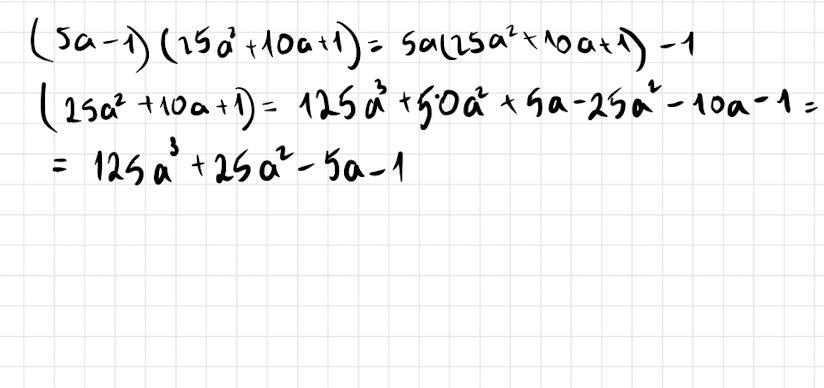 (5a-1)(25a²+10a+1)= 5a(25a²+10a+1)-1
(25a²+10a+1)= 125a³+50a²+5a-25a²-10a-1=
= 125a³+25a²-5a-1